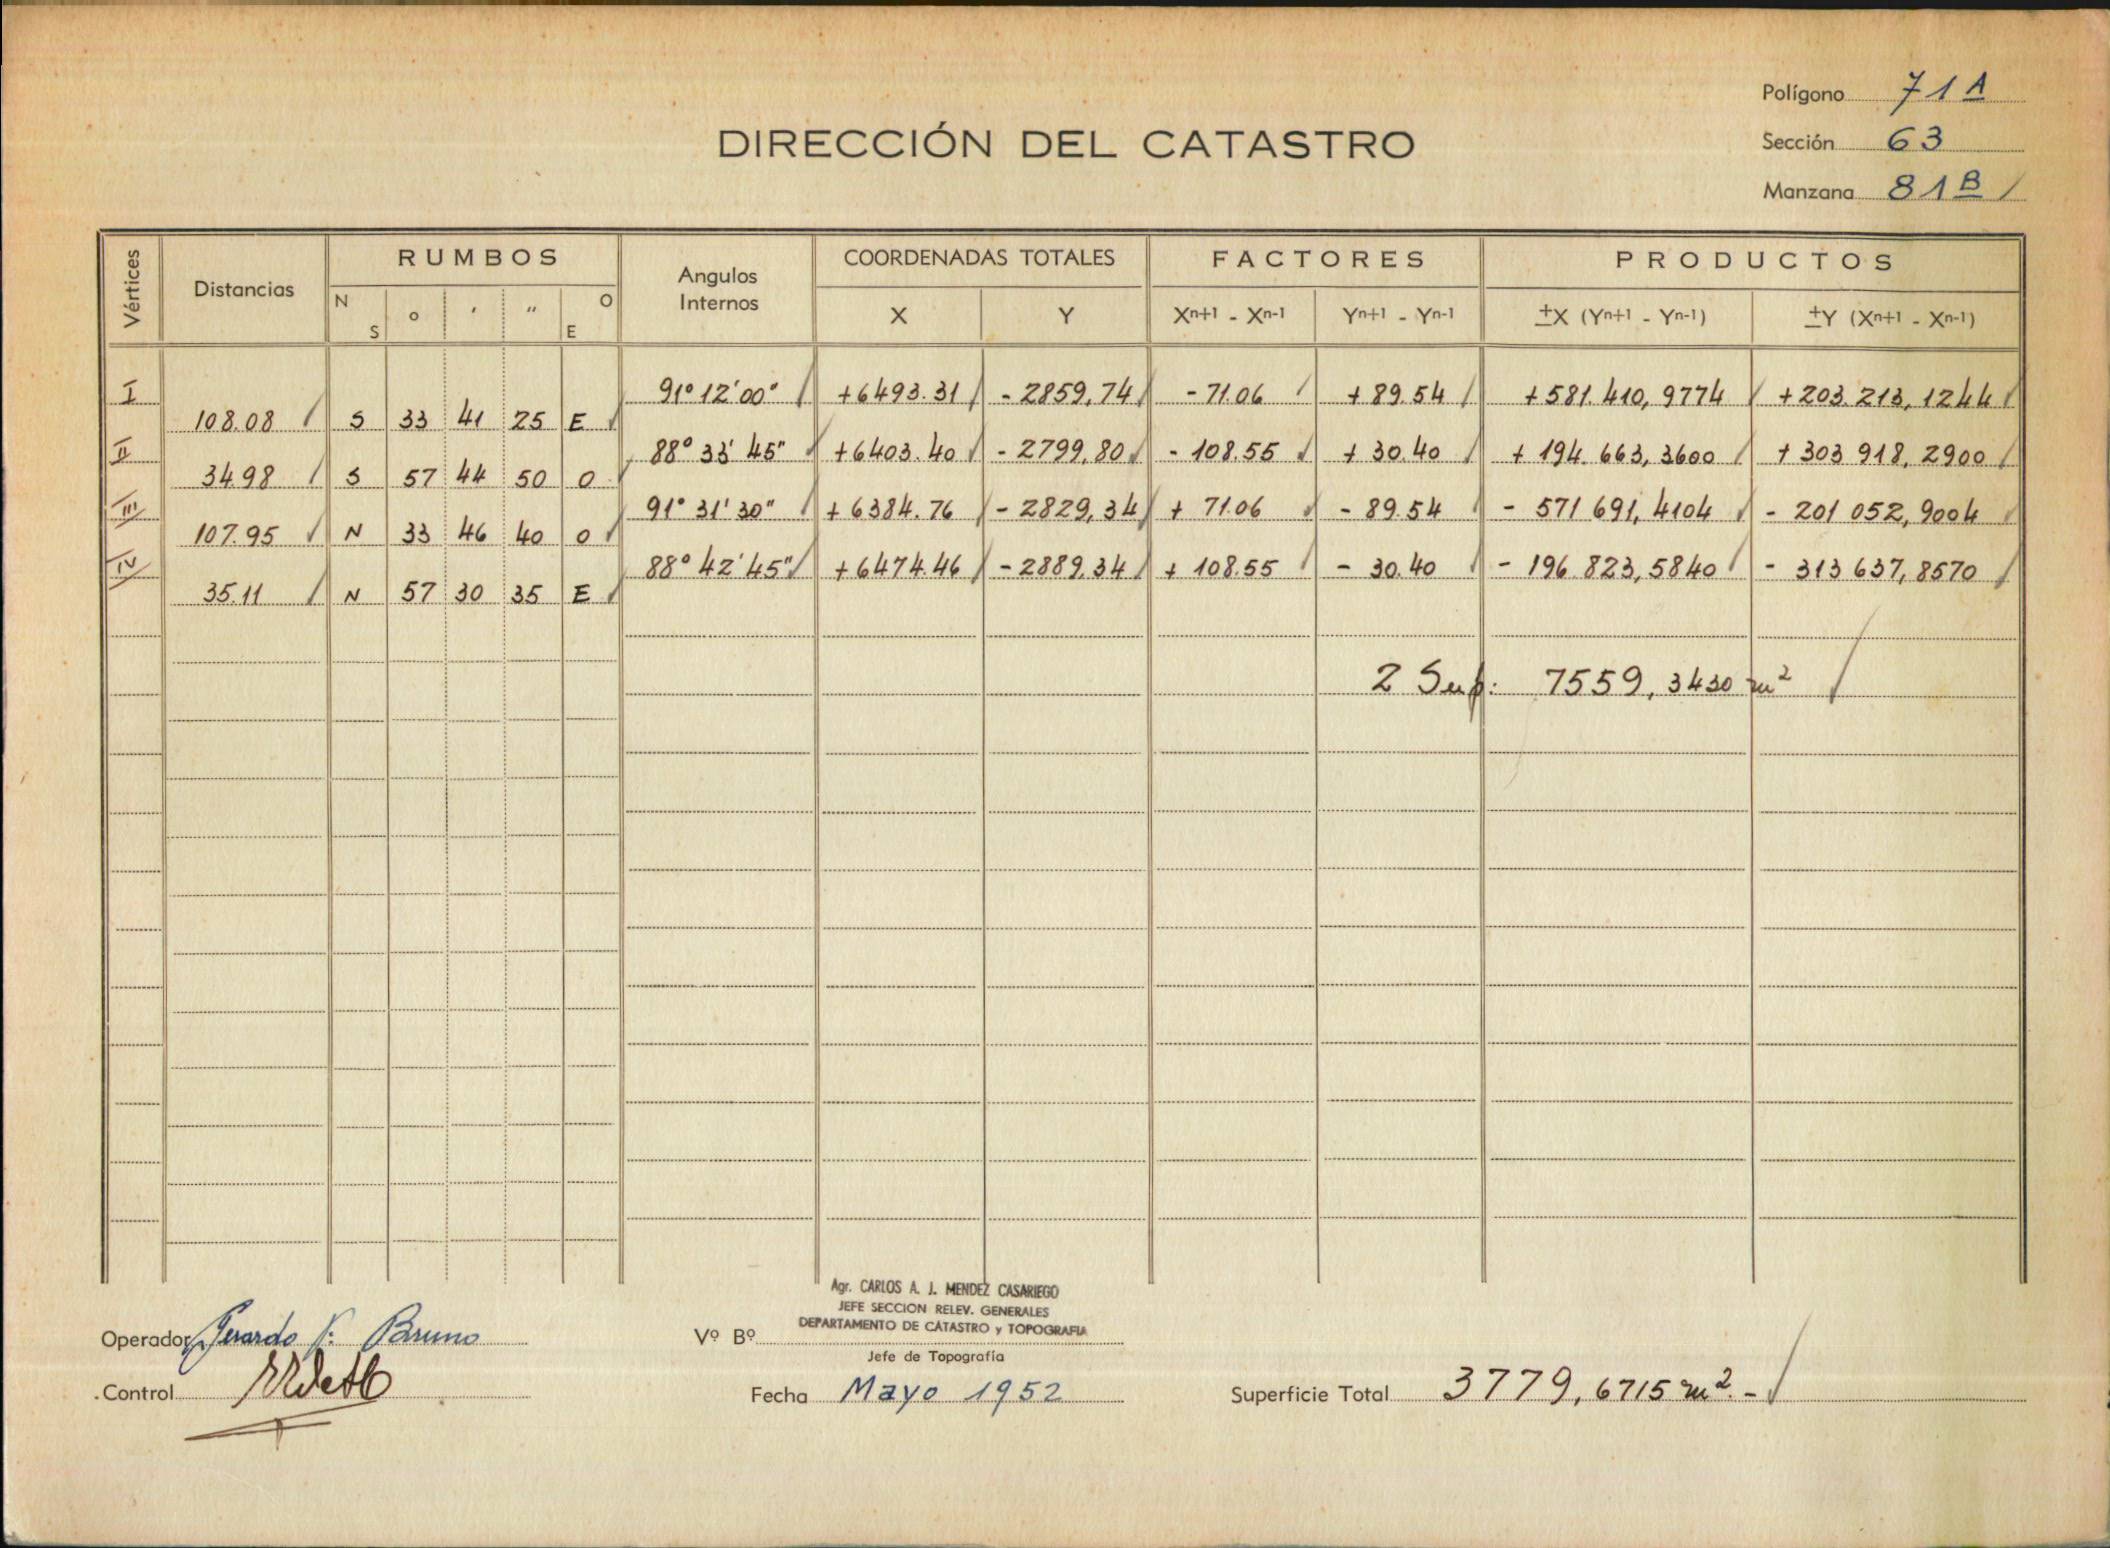 Polígono 71 A
DIRECCIÓN DEL CATASTRO
Sección 63
Manzana 81 B
Vértices Distancias RUMBOS Angulos Internos COORDENADAS TOTALES FACTORES PRODUCTOS
N S o ' " O E X Y Xn+1 - Xn-1 Yn+1 - Yn-1 ±X (Yn+1 - Yn-1) ±Y (Xn+1 - Xn-1)
I 91° 12' 00" +6493.31 - 2859,74 - 71.06 + 89.54 + 581.410,9774 + 203.213,1244
108.08 S 33 41 25 E
II 88° 33' 45" +6403.40 - 2799,80 - 108.55 + 30.40 + 194.663,3600 + 303 918,2900
34.98 S 57 44 50 O
III 91° 31' 30" + 6384.76 - 2829,34 + 71.06 - 89.54 - 571 691,4104 - 201 052,9004
107.95 N 33 46 40 O
IV 88° 42' 45" +6474.46 - 2889,34 + 108.55 - 30.40 - 196.823,5840 - 313 637,8570
35.11 N 57 30 35 E
2 Sup: 7559,3430 m²
Agr. CARLOS A. J. MENDEZ CASARIEGO
JEFE SECCION RELEV. GENERALES
DEPARTAMENTO DE CATASTRO y TOPOGRAFIA
Operador Gerardo Bruno
Vº Bº
Jefe de Topografía
Control
Fecha Mayo 1952
Superficie Total 3779,6715 m².-